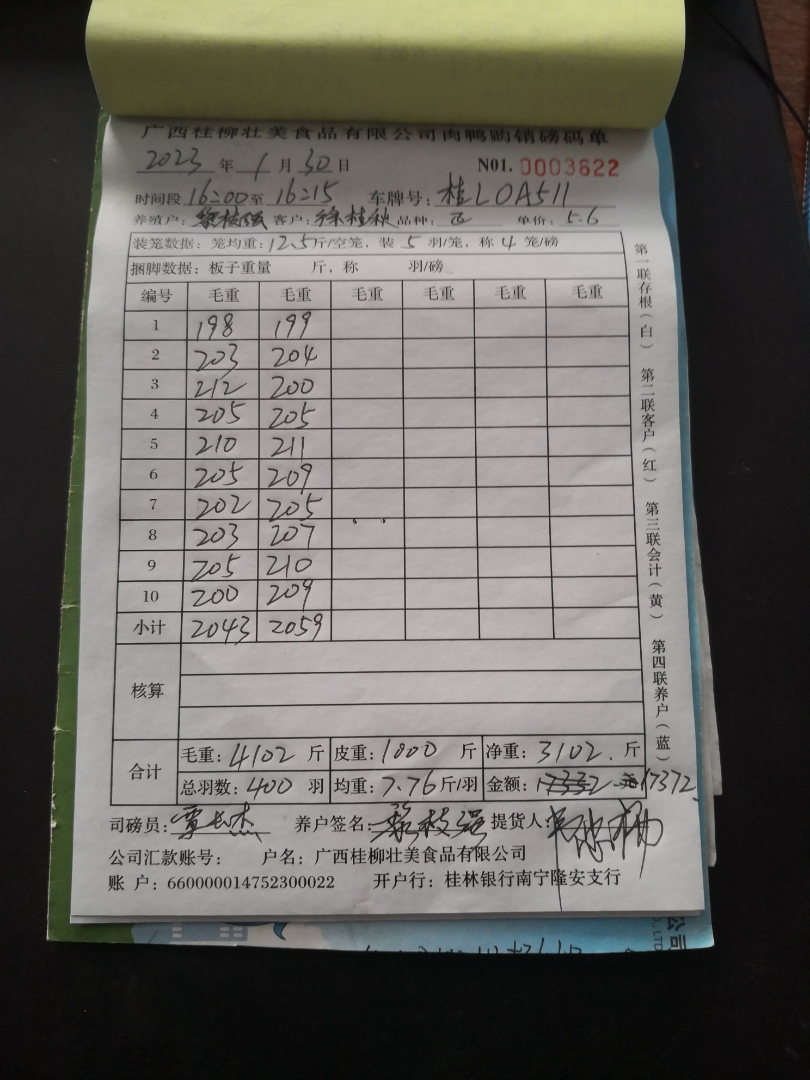 广西桂柳壮美食品有限公司肉鸭购销磅码单
2023 年 1 月 30 日 N01. 0003622
时间段 16:00 至 16:15 车牌号: 桂L0A511
养殖户: 黎枝强 客户: 徐桂秋 品种: 单价: 5.6
装笼数据: 笼均重: 12.5 斤/空笼, 装 5 羽/笼, 称 4 笼/磅
捆脚数据: 板子重量 斤, 称 羽/磅
编号 毛重 毛重 毛重 毛重 毛重 毛重
1 198 199
2 203 204
3 212 200
4 205 205
5 210 211
6 205 209
7 202 205
8 203 207
9 205 210
10 200 209
小计 2043 2059
核算
合计
毛重: 4102 斤 皮重: 1000 斤 净重: 3102. 斤
总羽数: 400 羽 均重: 7.76 斤/羽 金额: 17332 元 17372
司磅员: 覃长杰 养户签名: 黎枝强 提货人:
公司汇款账号: 户名: 广西桂柳壮美食品有限公司
账 户: 660000014752300022 开户行: 桂林银行南宁隆安支行
第一联存根(白) 第二联客户(红) 第三联会计(黄) 第四联养户(蓝)
公司